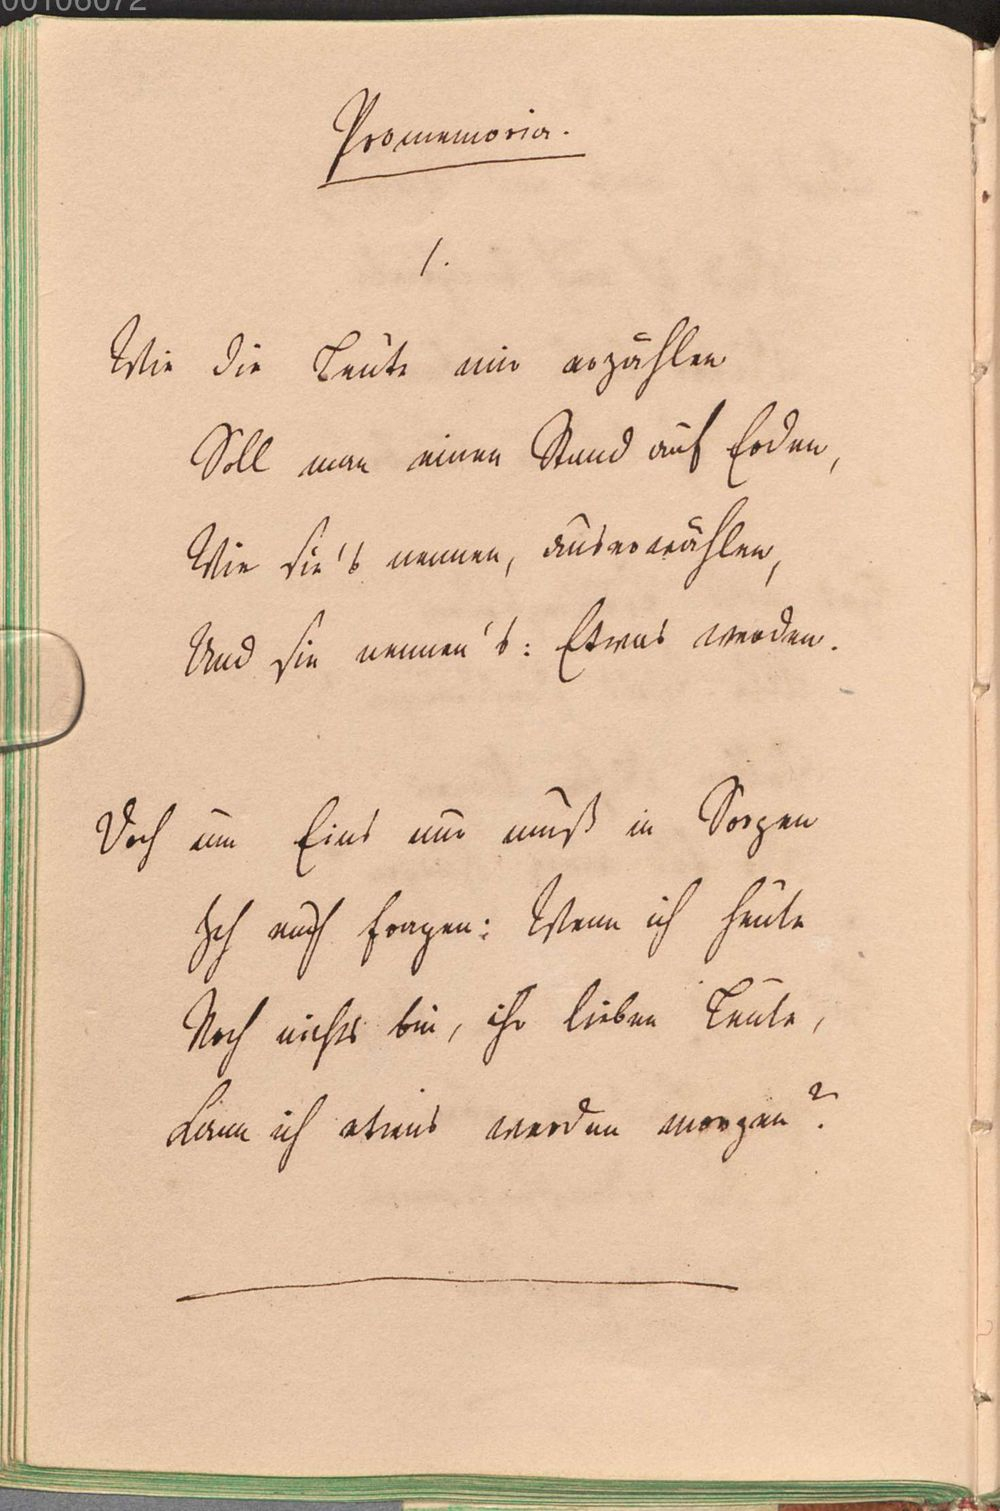 00106072
Promemoria.
1.
Wie die Leute mir erzählen
Soll man einen Stand auf Erden,
Wie sie's nennen, auserwählen,
Und sie nennen's: Etwas werden.
Doch um Eins nur muß in Sorgen
Ich euch fragen: Wenn ich heute
Noch nichts bin, ihr lieben Leute,
Kann ich etwas werden morgen?